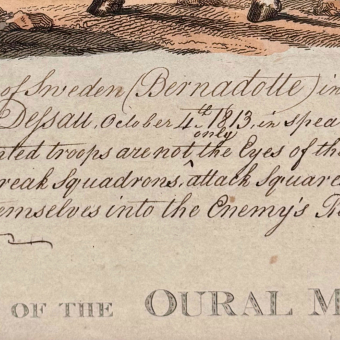 of Sweden (Bernadotte) in
Dessau, October 4th 1813, in spea
ted troops are not only the Eyes of the
reak Squadrons, attack Square
emselves into the Enemy's
OF THE OURAL M